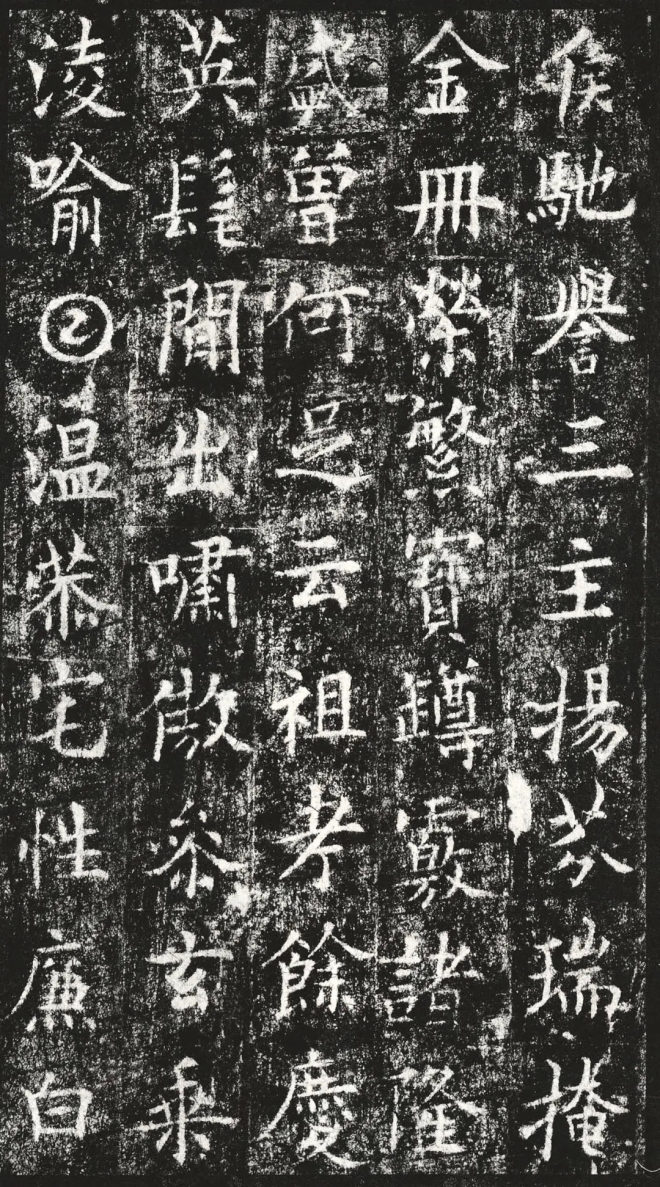 侯馳譽三主揚芬瑞掩
金冊縈繁寶覈諸隆
盛曾何足云祖考餘慶
英髦間出嘯傲叅玄乘
淩喻𡆠温恭宅性廉白